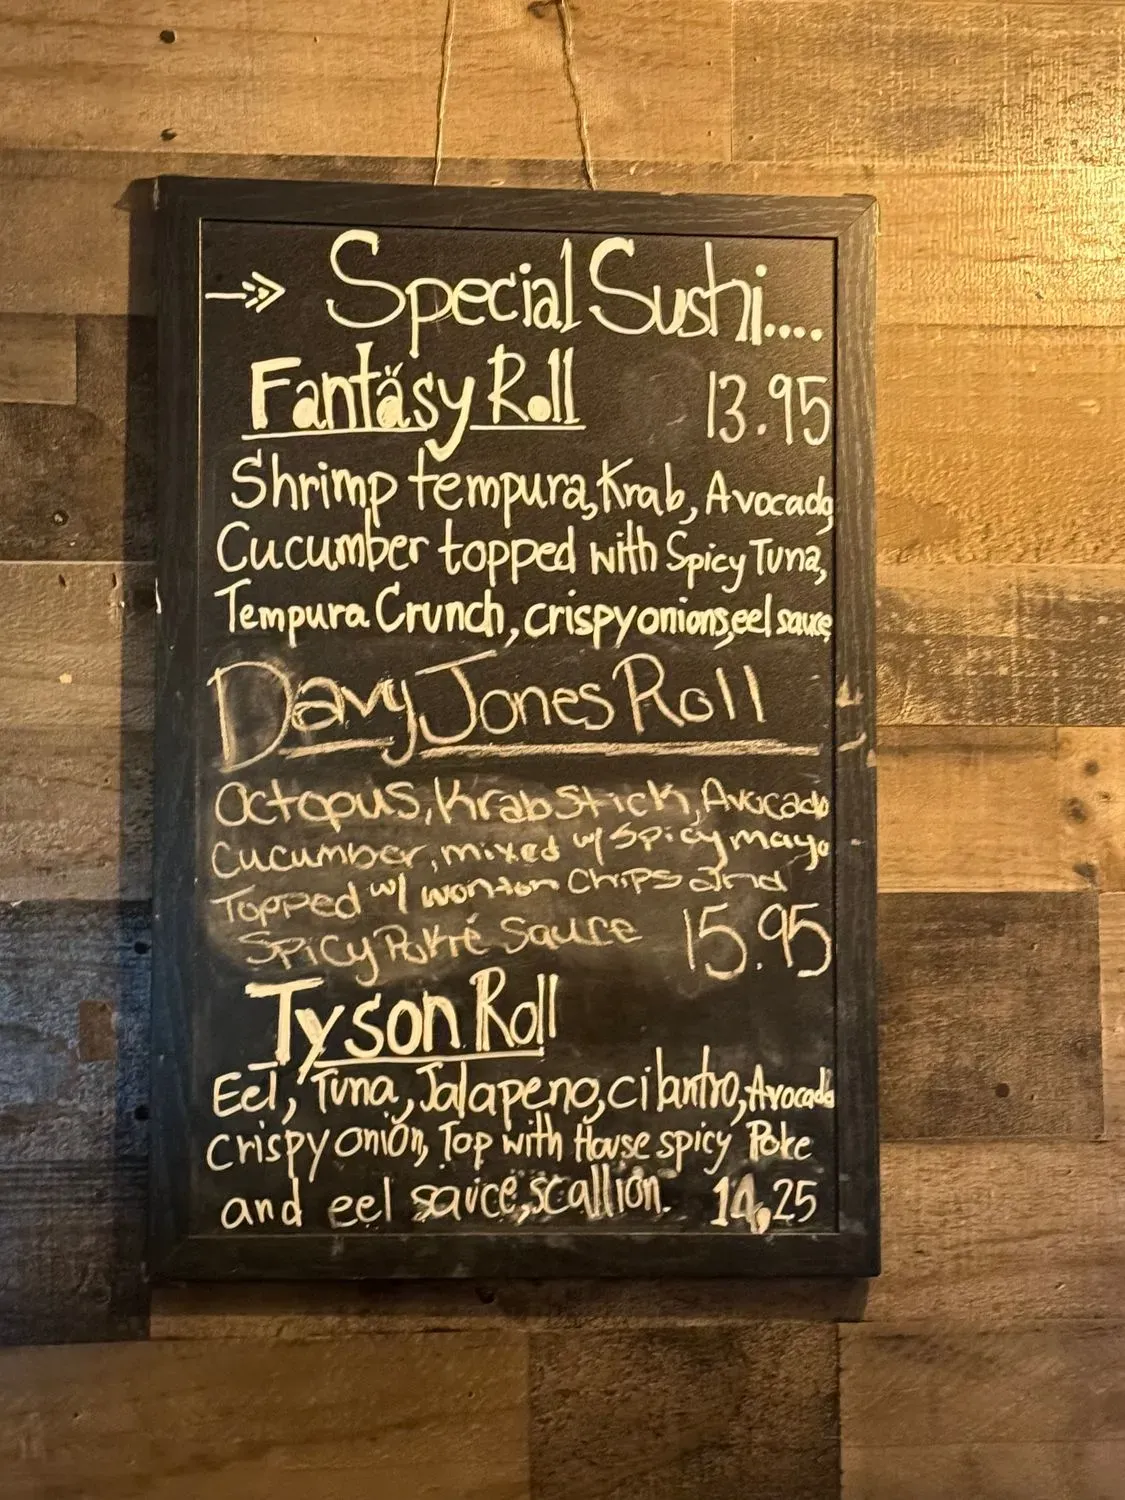 Special Sushi....
Fantasy Roll 13.95
Shrimp tempura, Krab, Avocado,
Cucumber topped with Spicy Tuna,
Tempura Crunch, crispy onions, eel sauce
Davy Jones Roll
Octopus, Krab Stick, Avocado
Cucumber, mixed w/ Spicy mayo
Topped w/ wonton Chips and
Spicy Pokré Sauce 15.95
Tyson Roll
Eel, Tuna, Jalapeno, cilantro, Avocado
crispy onion, Top with House spicy Poke
and eel sauce, scallion. 14,25